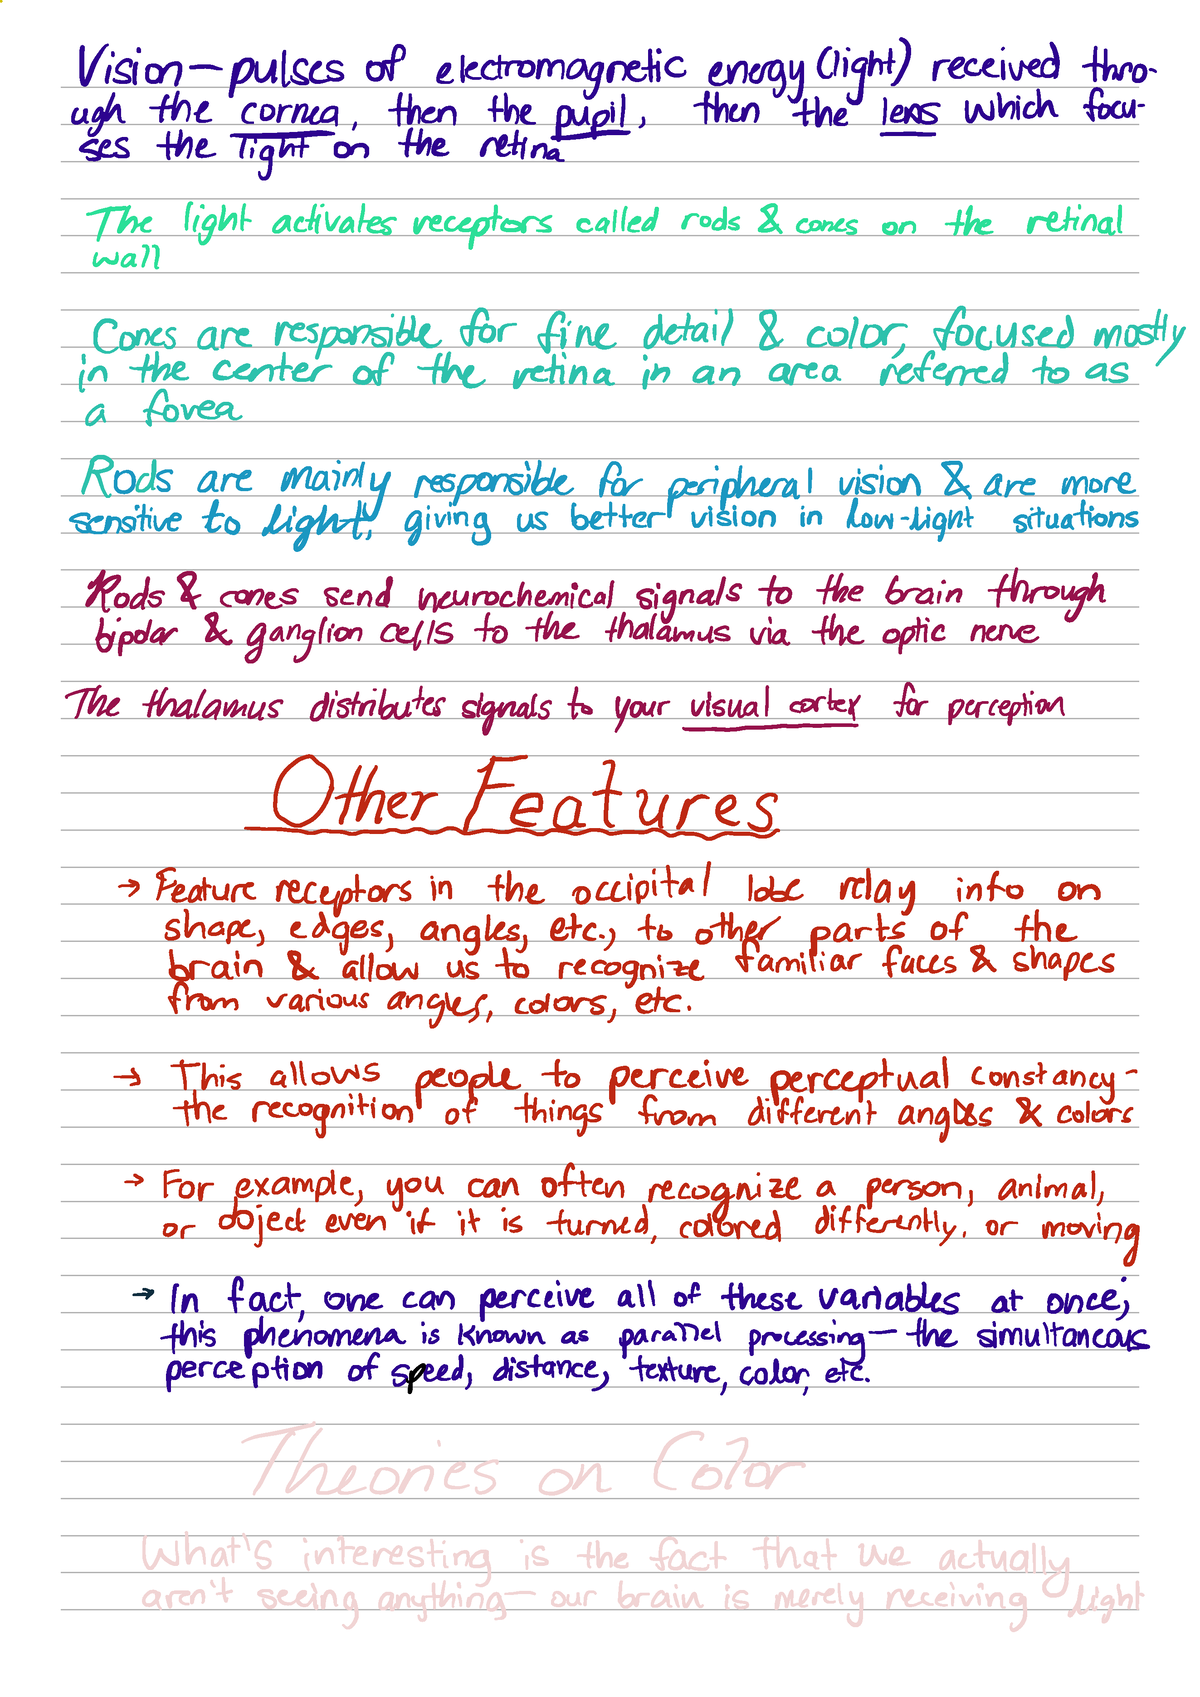 Vision—pulses of electromagnetic energy (light) received thro-
ugh the cornea, then the pupil, then the lens which focu-
ses the light on the retina
The light activates receptors called rods & cones on the retinal
wall
Cones are responsible for fine detail & color, focused mostly
in the center of the retina in an area referred to as
a fovea
Rods are mainly responsible for peripheral vision & are more
sensitive to light, giving us better vision in low-light situations
Rods & cones send neurochemical signals to the brain through
bipolar & ganglion cells to the thalamus via the optic nerve
The thalamus distributes signals to your visual cortex for perception
Other Features
→ Feature receptors in the occipital lobe relay info on
shape, edges, angles, etc., to other parts of the
brain & allow us to recognize familiar faces & shapes
from various angles, colors, etc.
→ This allows people to perceive perceptual constancy-
the recognition of things from different angles & colors
→ For example, you can often recognize a person, animal,
or object even if it is turned, colored differently, or moving
→ In fact, one can perceive all of these variables at once;
this phenomena is known as parallel processing— the simultaneous
perception of speed, distance, texture, color, etc.
Theories on Color
What's interesting is the fact that we actually
aren't seeing anything— our brain is merely receiving light